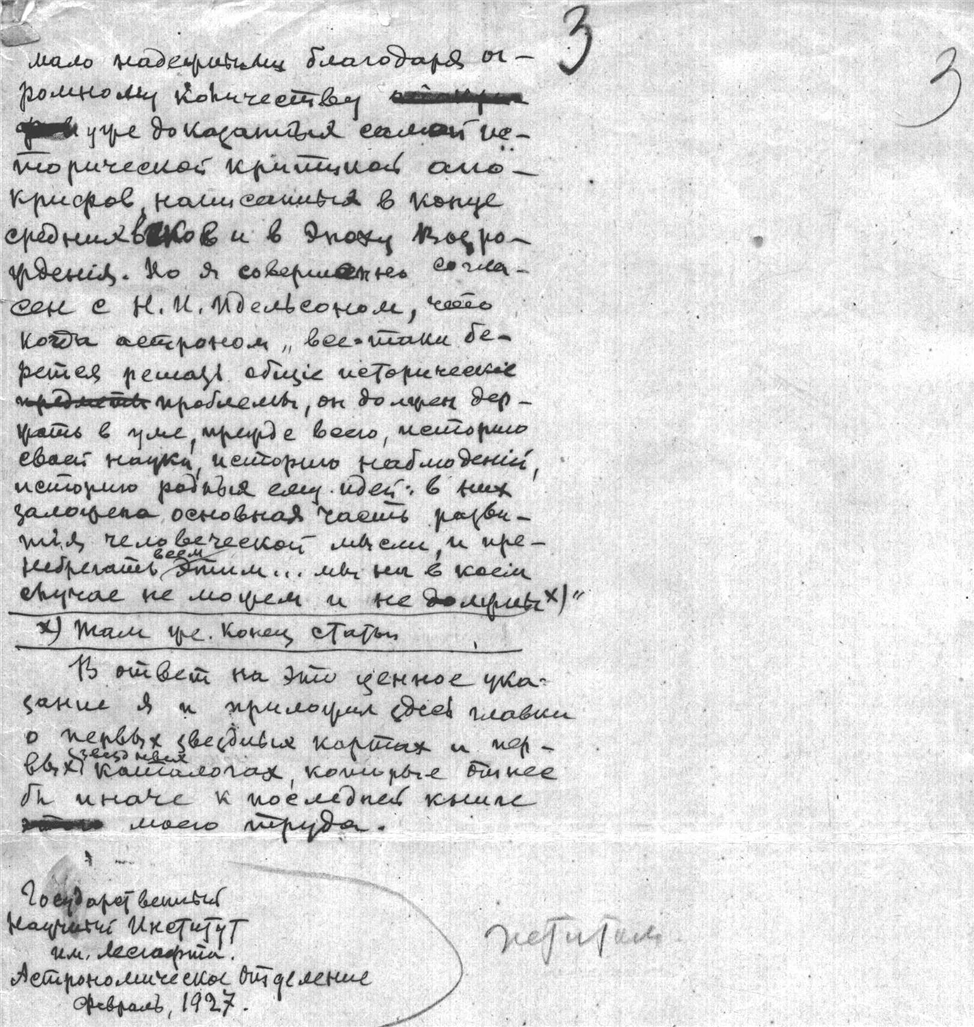 3
3
мало надежными благодаря ог-
ромному количеству
уже доказанных самой ис-
торической критикой апо-
крифов, написанных в конце
средних веков и в эпоху Возро-
ждения. Но я совершенно согла-
сен с Н. И. Идельсоном, что
когда астроном „все-таки бе-
рется решать общие исторические
предметы проблемы, он должен дер-
жать в уме, прежде всего, историю
своей науки, историю наблюдений,
историю родных ему идей: в них
заложена основная часть разви-
тия человеческой мысли, и пре-
небрегать всем этим... мы ни в коем
случае не можем и не должны х)"
х) Там же. Конец статьи
В ответ на это ценное ука-
зание я и приложил здесь главки
о первых звездных картах и пер-
вых звездных каталогах, которые отнес
бы иначе к последней книге
моего труда.
Государственный
Научный Институт
им. Лесгафта.
Астрономическое Отделение
Февраль, 1927.